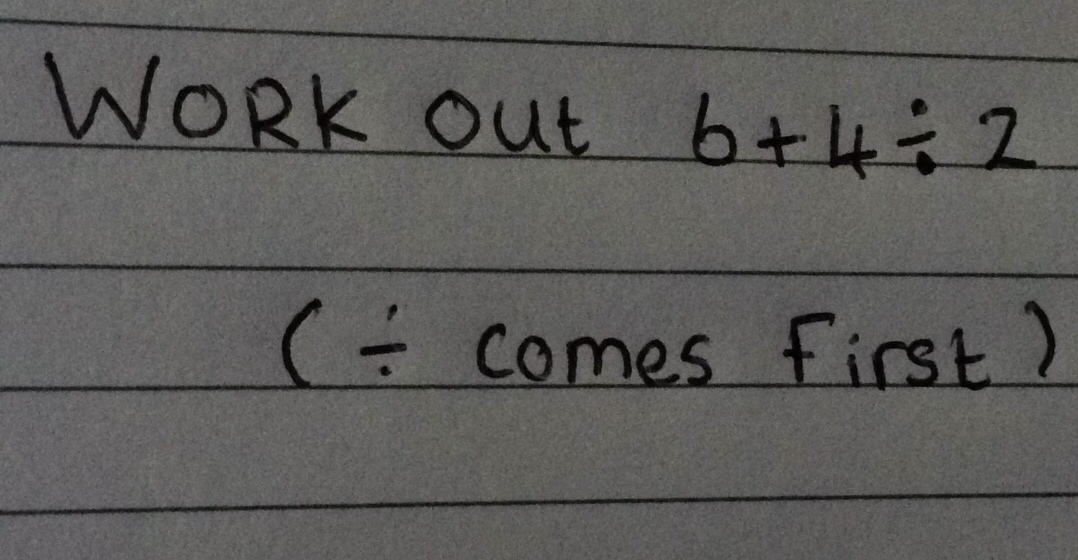 WORK Out 6+4÷2
(÷ comes first)